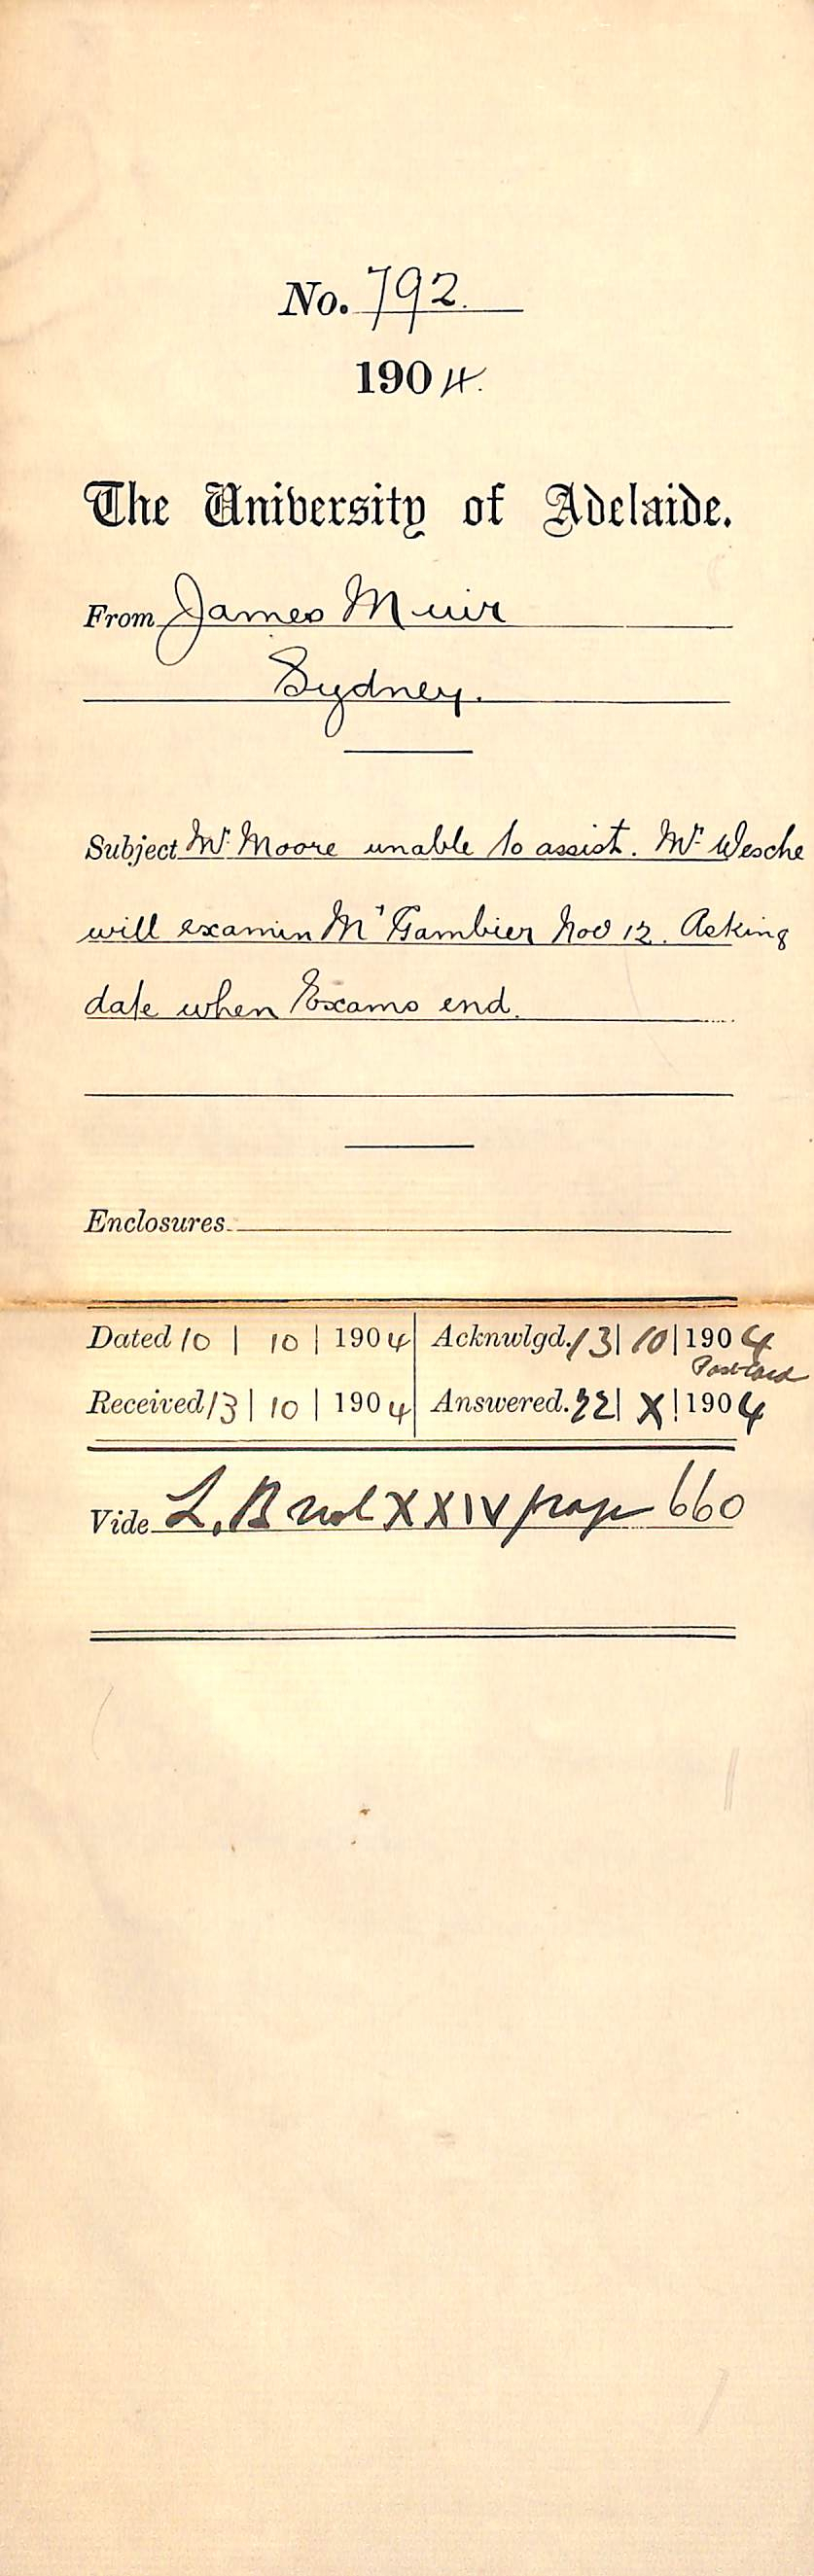 No. 792.
1904.
The University of Adelaide.
From James Muir
Sydney.
Subject Mr. Moore unable to assist. Mr. Wesche
will examin Mt Gambier Nov 12. Asking
date when Exams end.
Enclosures
Dated 10 | 10 | 1904 Acknwlgd. 13 | 10 | 1904
Postcard
Received 13 | 10 | 1904 Answered. 22 | X | 1904
Vide L. B vol XXIV page 660